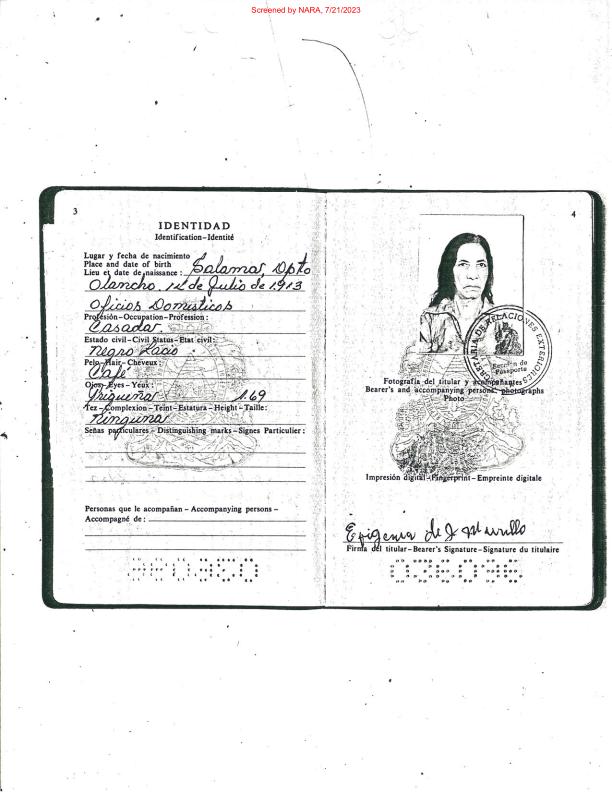 Screened by NARA, 7/21/2023
3
IDENTIDAD
Identification-Identité
Lugar y fecha de nacimiento
Place and date of birth
Lieu et date de naissance: Salama, Dpto
Olancho, 12 de Julio de 1913
Oficios Domisticos
Profesión-Occupation-Profession:
Casada
Estado civil-Civil Status-Etat civil:
Negro Lacio
Pelo-Hair-Cheveux:
Café
Ojos-Eyes-Yeux:
Trigueña 1.69
Tez-Complexion-Teint-Estatura-Height-Taille:
Ninguna
Señas particulares-Distinguishing marks-Signes Particulier:
Personas que le acompañan-Accompanying persons-
Accompagné de:
4
SECRETARIA DE RELACIONES EXTERIORES
Sección de
Pasaporte
Fotografía del titular y acompañantes
Bearer's and accompanying persons' photographs
Photo
Impresión digital-Fingerprint-Empreinte digitale
Efigenia de J Murillo
Firma del titular-Bearer's Signature-Signature du titulaire